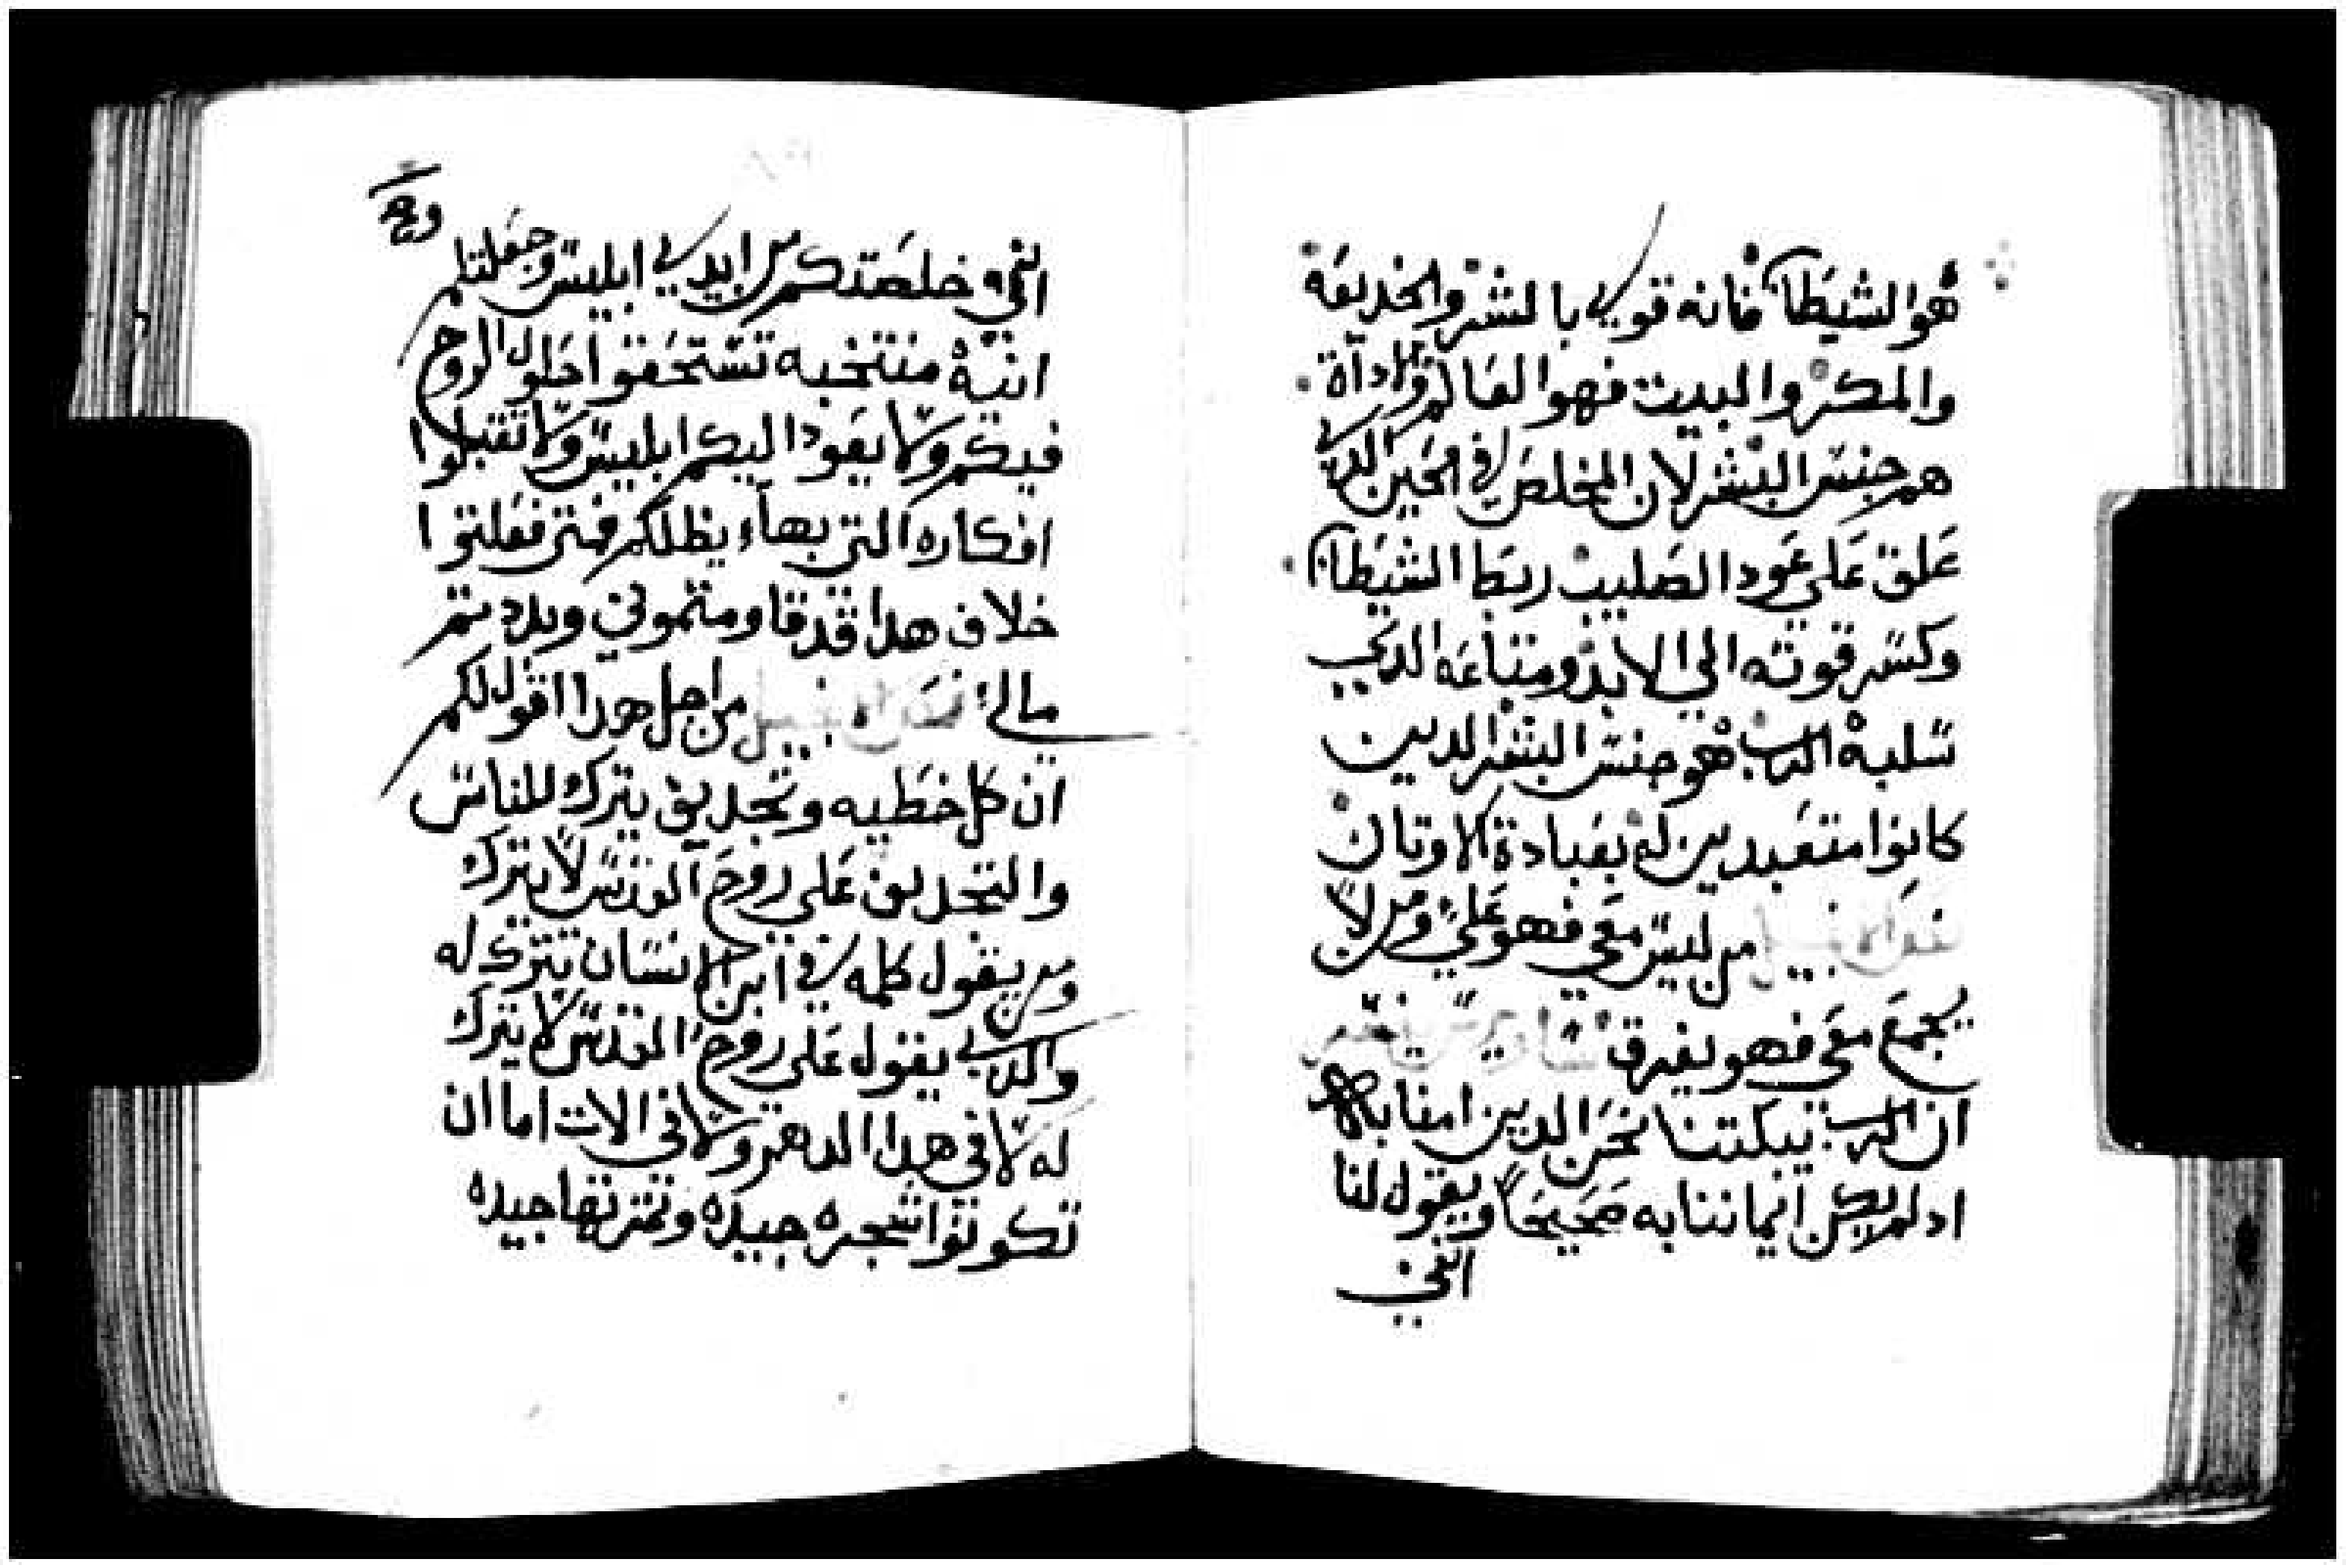 هو الشيطان فانه قوي بالشر والخديعة
والمكر والبيت فهو العالم واداة
هم جنس البشر لان المخلص في الحين الدي
علق علي عود الصليب ربط الشيطان
وكسر قوته الي الابد ومتاعه الدي
سلبه الرب هو جنس البشر الدين
كانوا متعبدين له بعبادة الاوتان
نص الانجيل من ليس معي فهو علي ومن لا
يجمع معي فهو يفرق
ان الرب يبكتنا نحن الدين امنا به
اد لم يكن ايماننا به صحيحا ويقول لنا
انني
انني خلصتكم من ايدي ابليس وجعلتكم
انية منتخبه تستحقوا حلول الروح
فيكم ولا يعود اليكم ابليس ولا تقبلوا
افكاره التي بها يظلكم فمتي فعلتوا
خلاف هدا قد قاومتموني وبددتم
مالي نص الانجيل من اجل هدا اقول لكم
ان كل خطيه وتجديف يترك للناس
والتجديف علي روح القدس لا يترك
ومن يقول كلمه في ابن الانسان يترك له
والدي يقول علي روح القدس لا يترك
له لا في هدا الدهر ولا في الات اما ان
تكونوا شجره جيده وتمرتها جيده